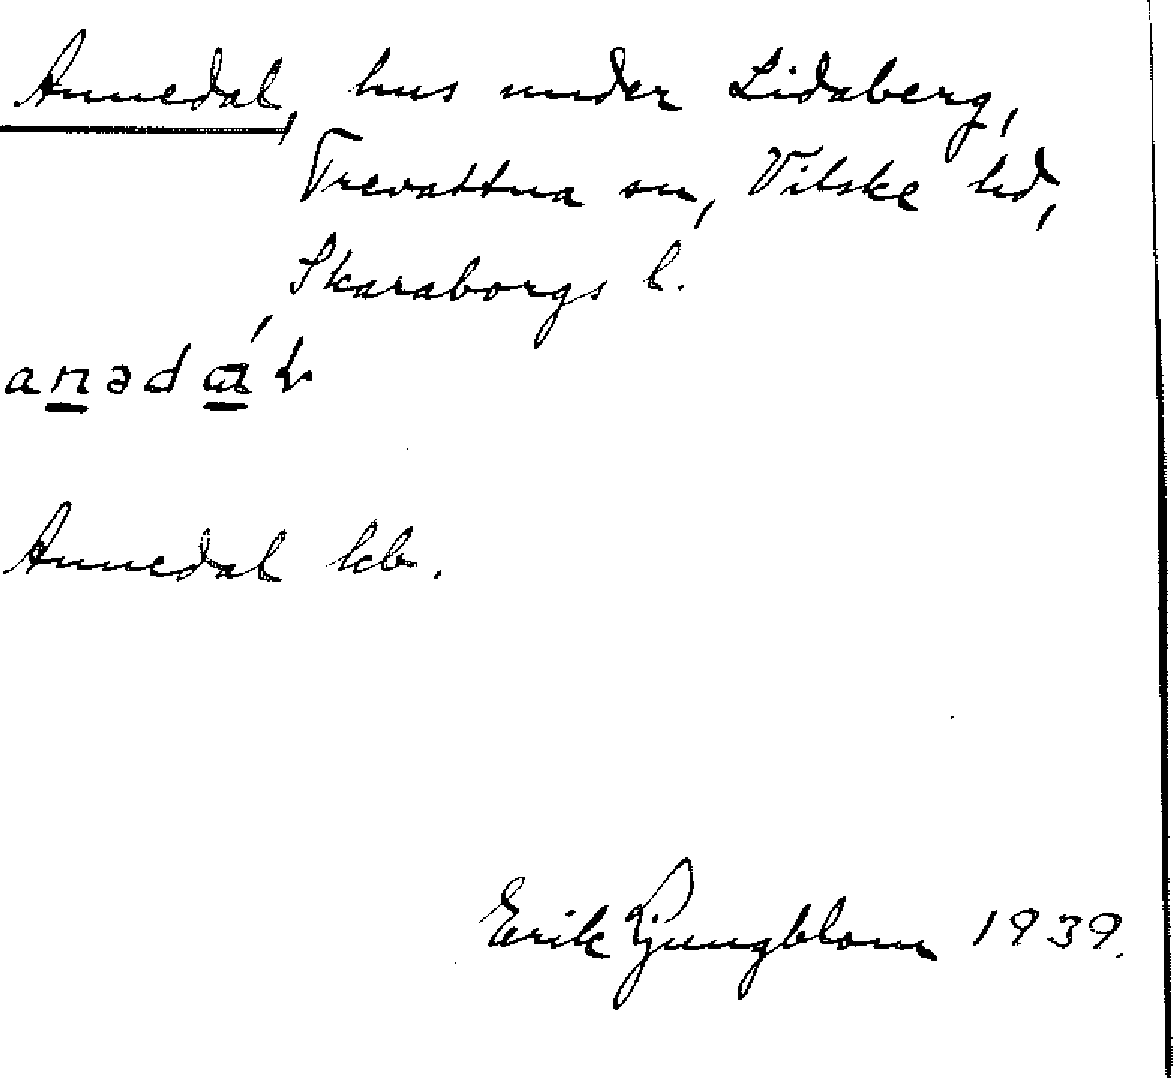 Annedal, hus under Lidaberg,
Trevattna sn, Vilske hd,
Skaraborgs l.
anədál
Annedal kb.
Erik Ljungblom 1939.